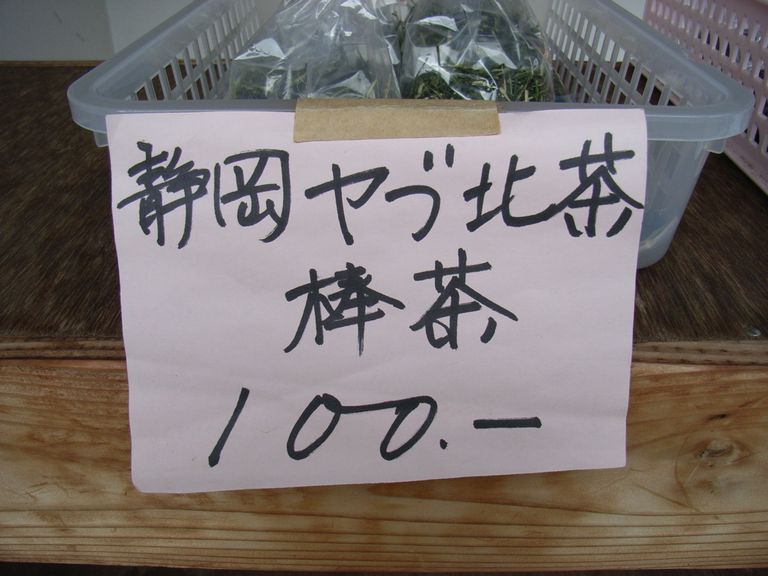 静岡ヤブ北茶
棒茶
100.ー